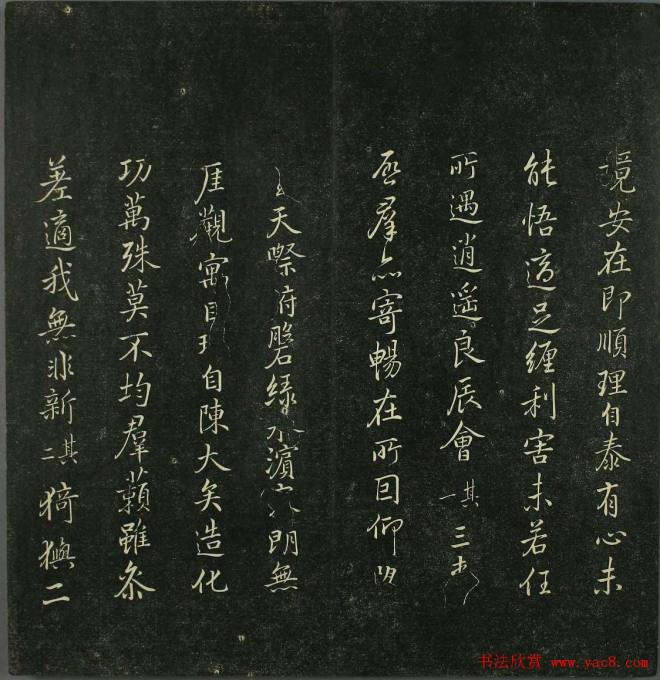 境安在即順理自泰有心未
能悟適足纏利害未若任
所遇逍遥良辰會其一三春
啓羣品寄暢在所因仰
天際俯磐緑水濱朗無
厓觀寓目理自陳大矣造化
功萬殊莫不均羣籟雖参
差適我無非新其二猗與二
书法欣赏 www.yac8.com